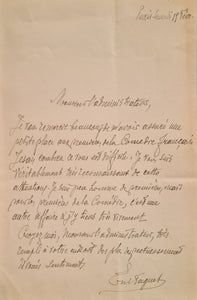 Paris lundi 17 Févr.
Monsieur l'administrateur,
Je vous remercie beaucoup de m'avoir assuré une
petite place aux premières de la Comédie Française
Je sais combien cela est difficile. Je vous suis
véritablement très reconnaissant de cette
attention. Je suis peu homme de premières, mais
pour les premières de la Comédie, c'est une
autre affaire & j'y tiens très vivement.
Croyez-moi, Monsieur l'administrateur, très
rempli à votre endroit des plus respectueusement
sentiments